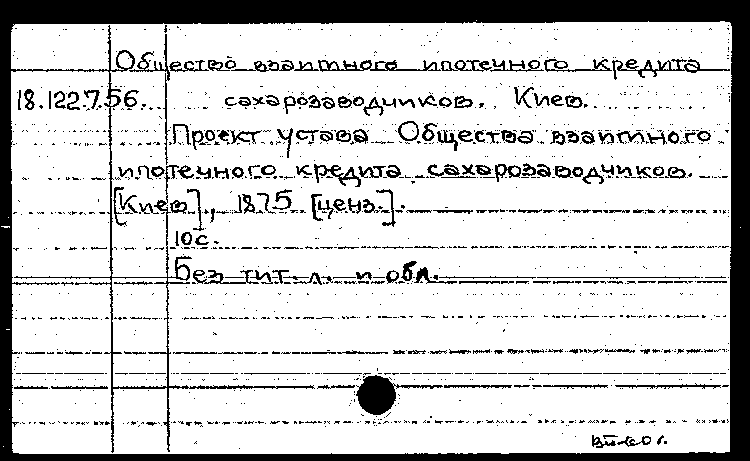 Общество взаимного ипотечного кредита
18.122.7.56. сахарозаводчиков. Киев.
Проект устава Общества взаимного
ипотечного кредита сахарозаводчиков.
[Киев], 1875 [ценз.].
10с.
Без тит. л. и обл.